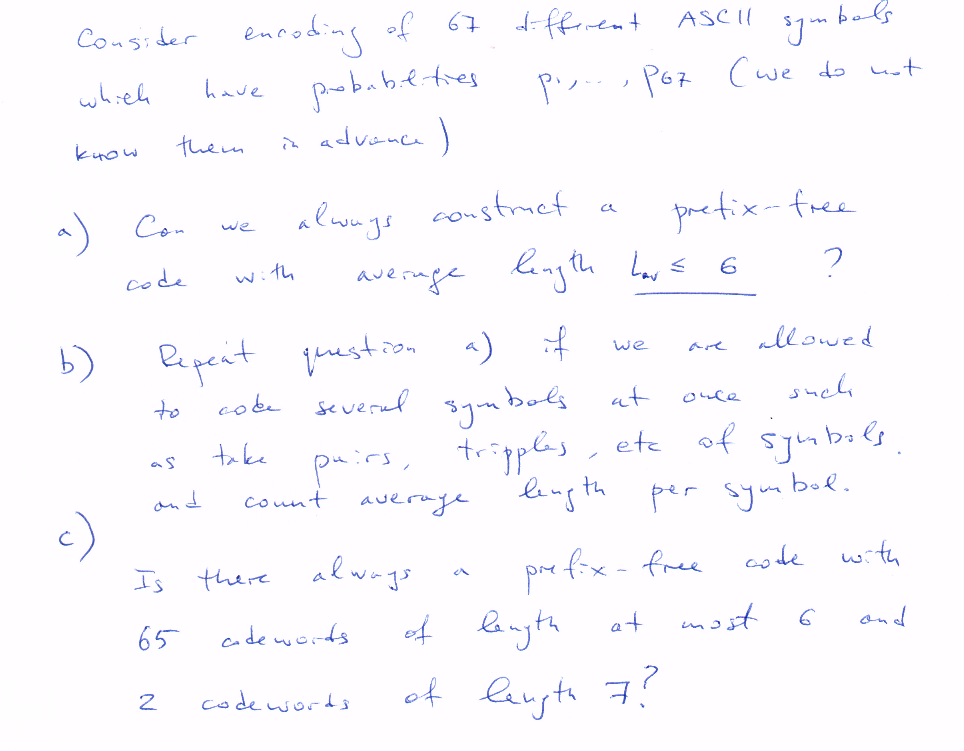 Consider encoding of 67 different ASCII symbols
which have probabilities p1,..., p67 (we do not
know them in advance)
a) Can we always construct a prefix-free
code with average length Lav ≤ 6 ?
b) Repeat question a) if we are allowed
to code several symbols at once such
as take pairs, tripples, etc of symbols
and count average length per symbol.
c)
Is there always a prefix-free code with
65 codewords of length at most 6 and
2 codewords of length 7?